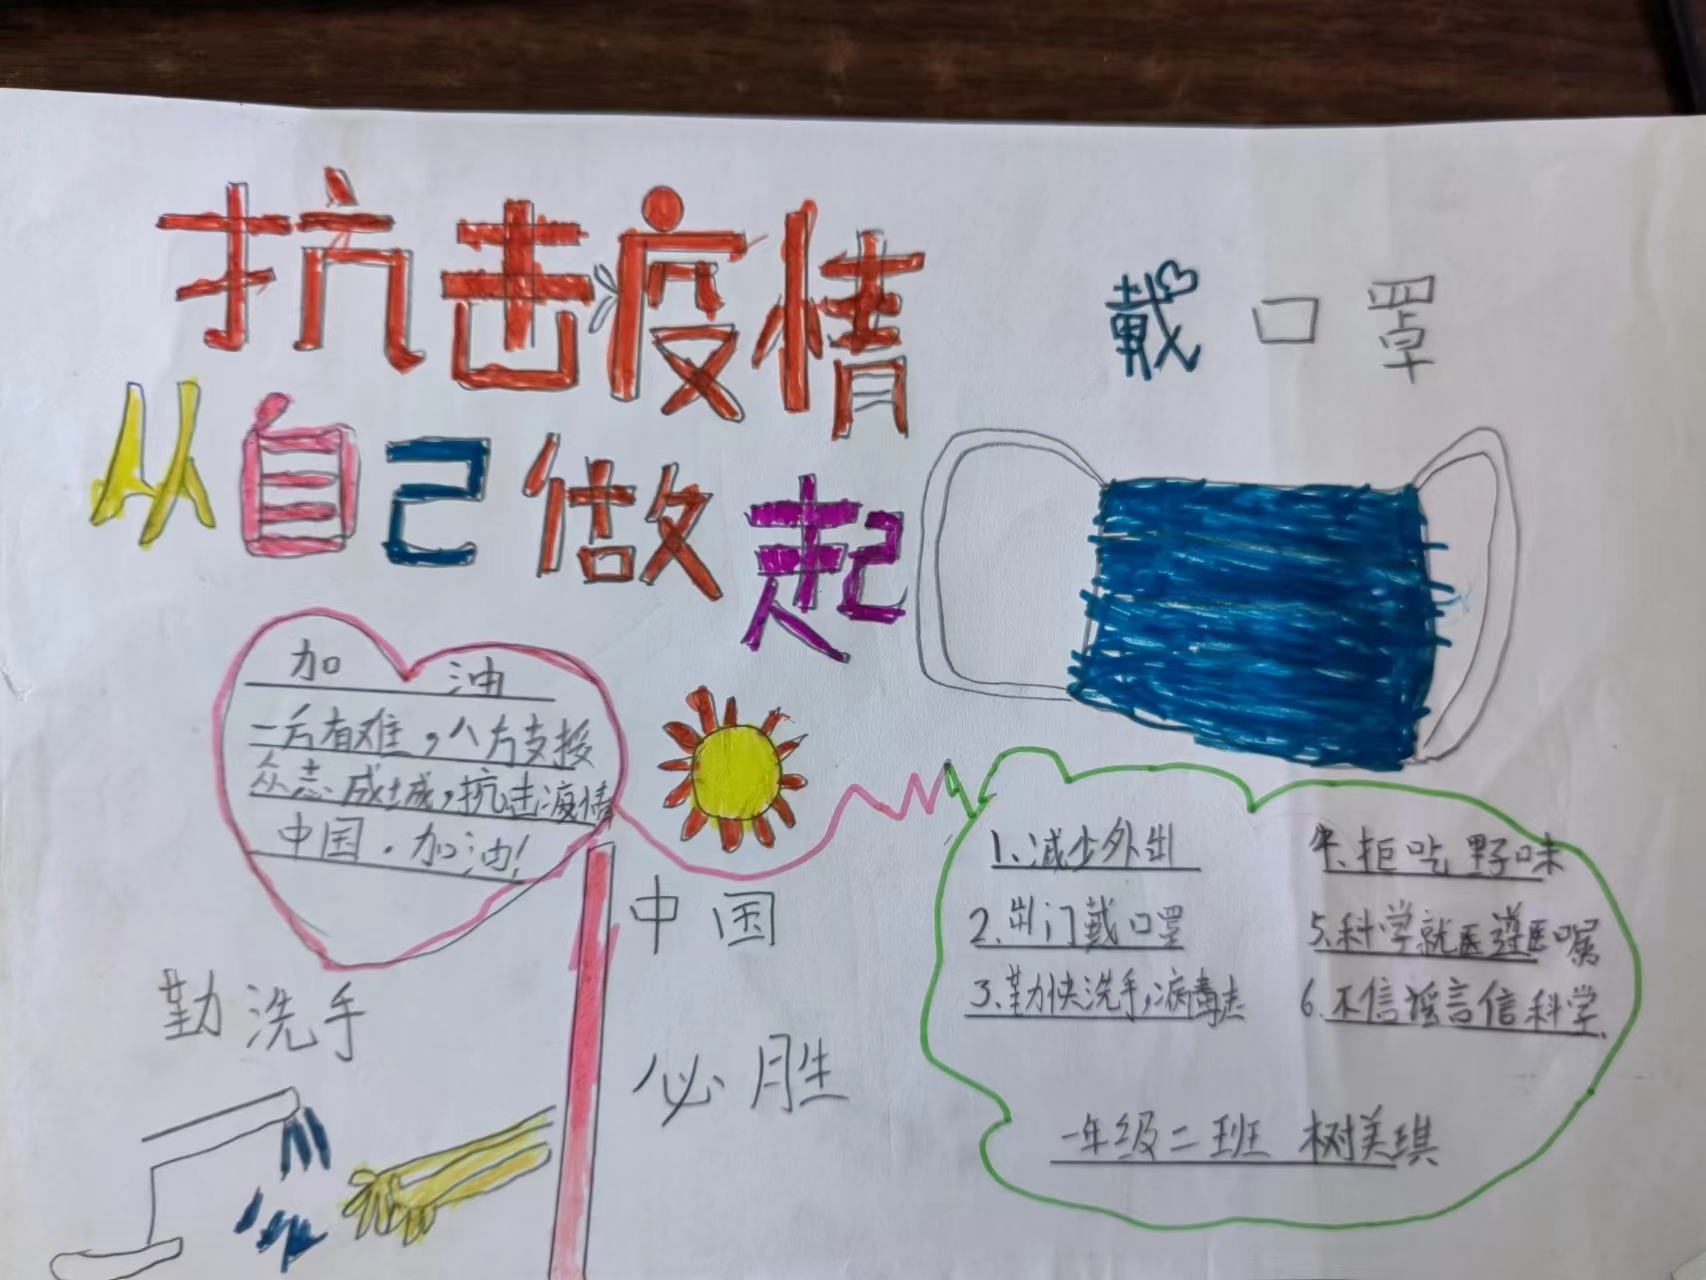 抗击疫情
从自己做起
戴口罩
加油
一方有难，八方支援
众志成城，抗击疫情
中国．加油！
中国
必胜
勤洗手
1、减少外出
2、出门戴口罩
3、勤快洗手，病毒走
4、拒吃野味
5、科学就医遵医嘱
6、不信谣言信科学．
一年级二班 树美琪